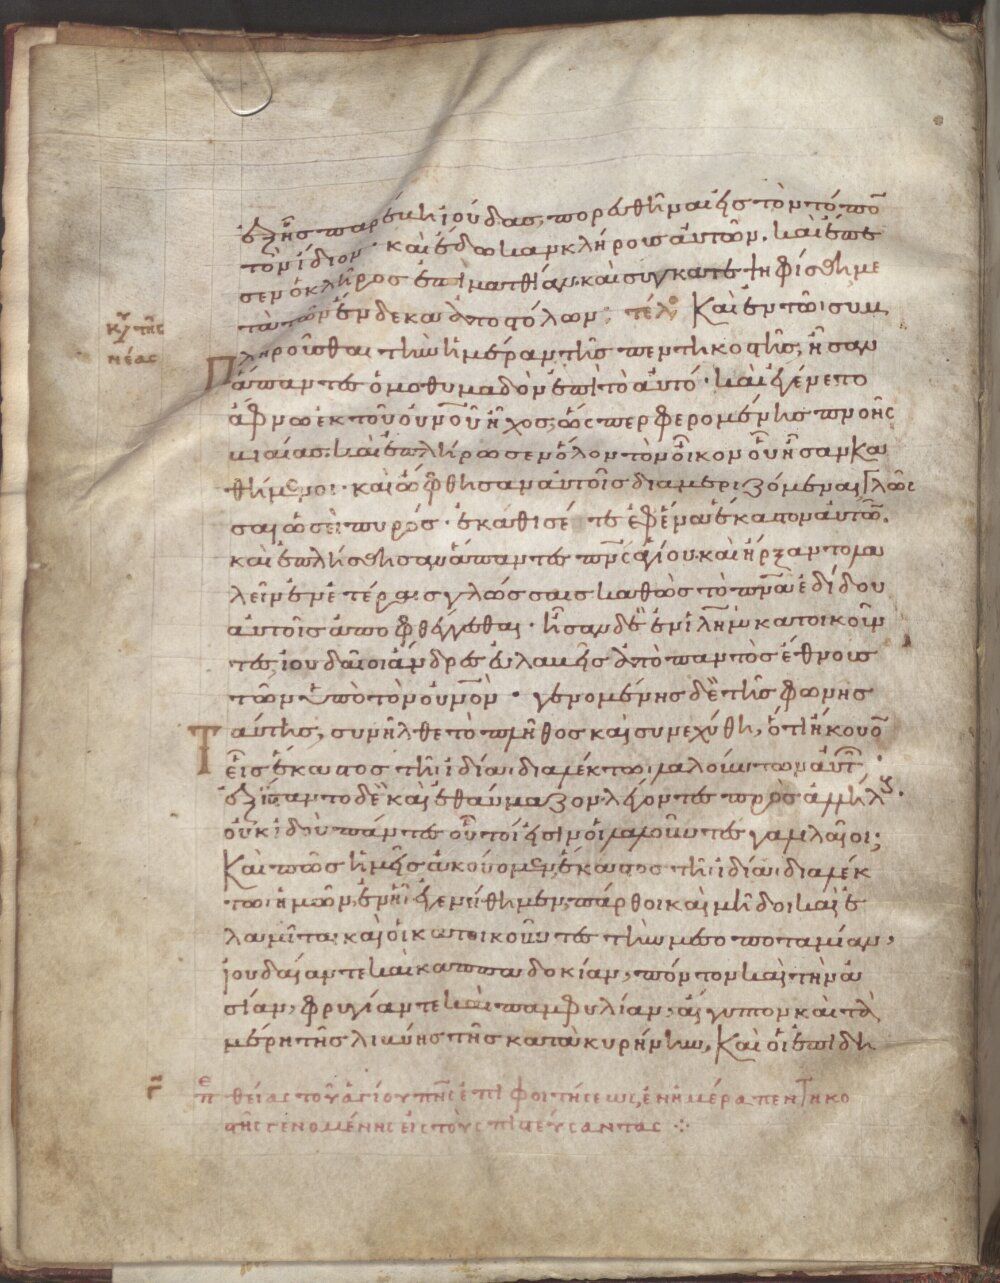 ἐξ ἧς παρέβη ἰούδας, πορευθῆναι εἰς τὸν τόπο̅
τὸν ἴδιον· καὶ ἔδωκαν κλήρους αὐτῶν. καὶ ἔπε
σεν ὁ κλῆρος ἐπὶ ματθίαν. καὶ συγκατεψηφίσθη με
τὰ τῶν ἕνδεκα ἀποστόλων· τέλ Καὶ ἐν τῶ συμ
κυ τῆς
νέας
πληροῦσθαι τὴν ἡμέραν τῆς πεντηκοστῆς, ἦσαν
ἅπαντες ὁμοθυμαδὸν ἐπὶ τὸ αὐτό· καὶ ἐγένετο
ἄφνω ἐκ τοῦ οὐνοῦ ἦχος, ὥσπερ φερομένης πνοῆς
βιαίας. καὶ ἐπλήρωσεν ὅλον τὸν οἶκον οὗ ἦσαν κα
θήμενοι· καὶ ὤφθησαν αὐτοῖς διαμεριζόμεναι γλῶς
σαι ὡσεὶ πυρός· ἐκάθισέ τε ἐφ' ἕνα ἕκαστον αὐτῶ̅.
καὶ ἐπλήσθησαν ἅπαντες πνς ἁγίου. καὶ ἤρξαντο λα
λεῖν ἑτέραις γλώσσαις καθὼς τὸ πνα ἐδίδου
αὐτοῖς ἀποφθέγγεσθαι· ἦσαν δὲ ἐν ἱλὴμ κατοικοῦν
τες ἰουδαῖοι ἄνδρες εὐλαβεῖς ἀπὸ παντὸς ἔθνους
τῶν ὑπὸ τὸν οὐνόν· γενομένης δὲ τῆς φωνῆς
ταύτης, συνῆλθε τὸ πλῆθος καὶ συνεχύθη, ὅτι ἤκουο̅
εἷς ἕκαστος τῆ ἰδία διαλέκτω λαλούντων αὐτ
ἐξίσταντο δὲ καὶ ἐθαύμαζον λέγοντες πρὸς ἀλλήλ
οὐκ ἰδοὺ πάντες οὗτοί εἰσιν οἱ λαλοῦντες γαλιλαῖοι;
Καὶ πῶς ἡμεῖς ἀκούομεν ἕκαστος τῆ ἰδία διαλέκ
τω ἡμῶν, ἐν ἧ ἐγεννήθημεν, πάρθοι καὶ μῆδοι καὶ ἐ
λαμῖται καὶ οἱ κατοικοῦντες τὴν μεσοποταμίαν,
ἰουδαίαν τε καὶ καππαδοκίαν, πόντον καὶ τὴν ἀ
σίαν, φρυγίαν τε καὶ παμφυλίαν, αἴγυπτον καὶ τὰ
μέρη τῆς λιβύης τῆς κατὰ κυρήνην, Καὶ οἱ ἐπιδη
γ πε θείας τοῦ ἁγίου πνς ἐπιφοιτήσεως, ἐν ἡμέρα πεντηκο
στῆς γενομένης εἰς τοὺς πιστεύσαντας